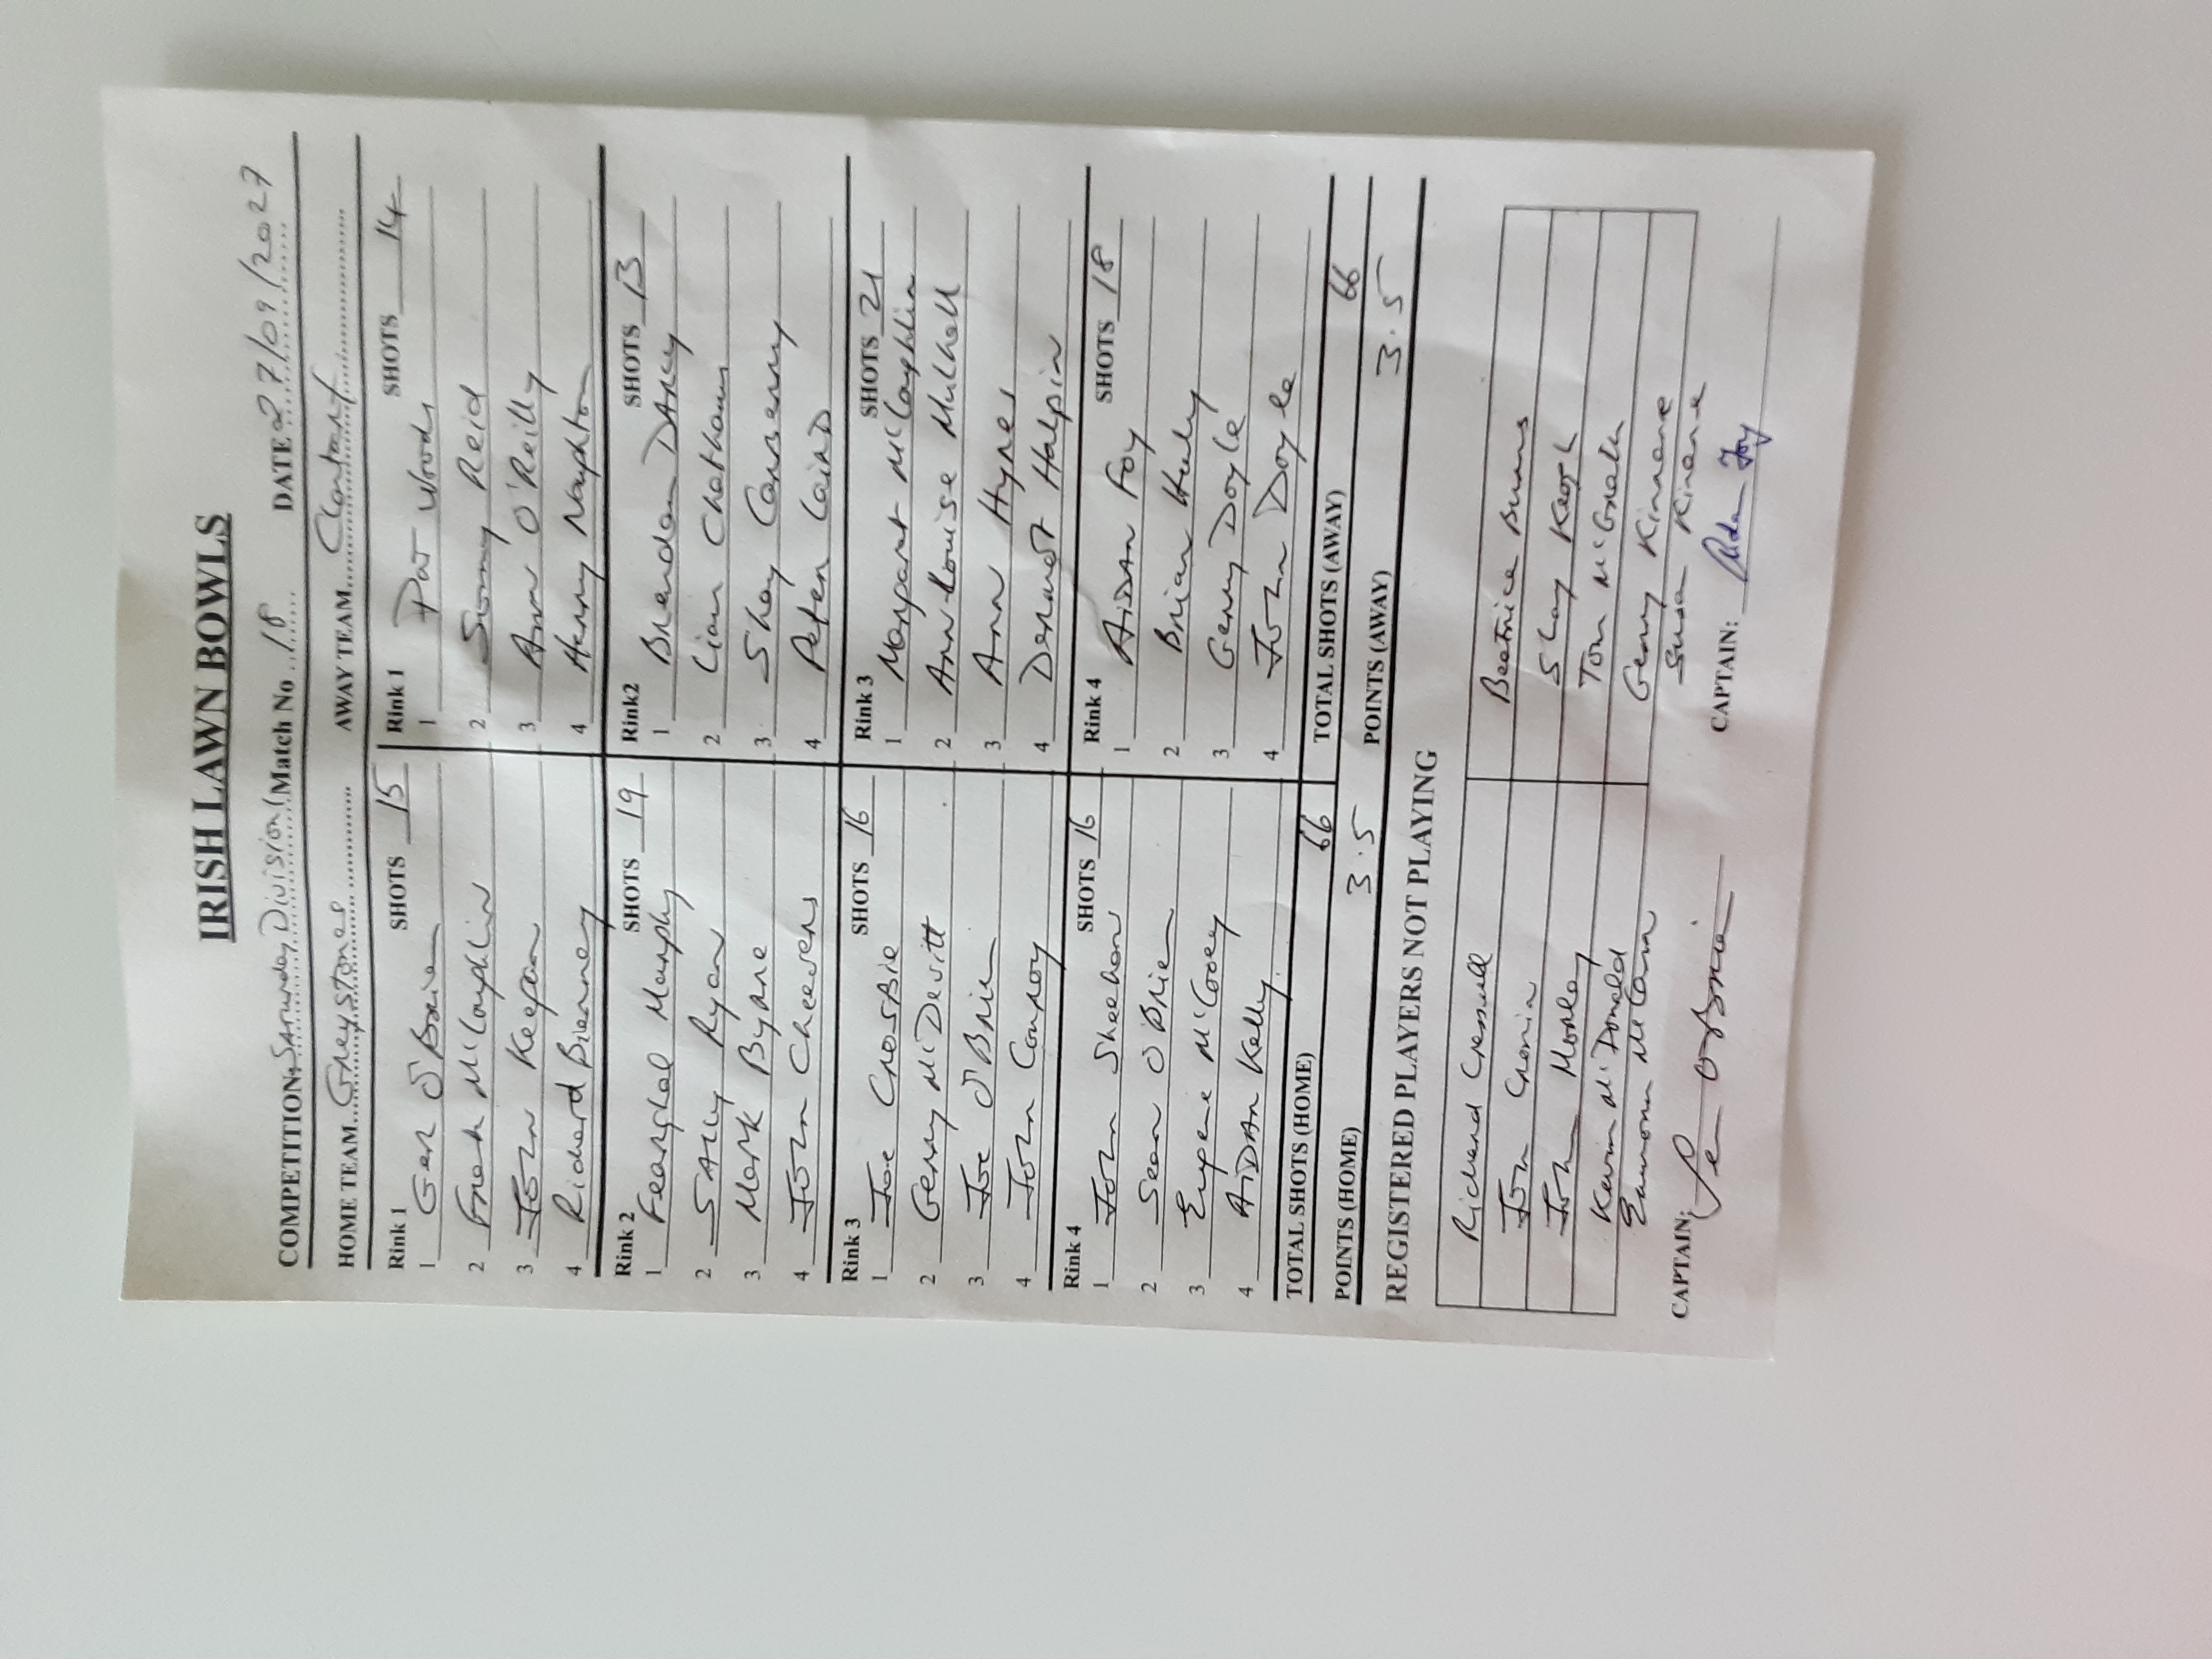 IRISH LAWN BOWLS
COMPETITION: Saturday Division 1 Match No. 18 DATE 27/09/2027
HOME TEAM Greystones AWAY TEAM Clontarf
Rink 1 SHOTS 15 Rink 1 SHOTS 14
1 Ger O'Brien 1 Pat Woods
2 Frank McLoughlin 2 Sunny Reid
3 John Keegan 3 Ann O'Reilly
4 Richard Bienney 4 Henry Naughton
Rink 2 SHOTS 19 Rink2 SHOTS 13
1 Fearghal Murphy 1 Brendan DArcy
2 SAlly Ryan 2 Liam Chatham
3 Mark Byrne 3 Shay Conserry
4 John Cheevers 4 Peter LairD
Rink 3 SHOTS 16 Rink 3 SHOTS 21
1 Joe CrosBie 1 Margaret McLoughlin
2 Gerry McDevitt 2 Ann-Louise Mulhall
3 Joe O'Brien 3 Ann Hynes
4 John Conroy 4 Dermot Halpin
Rink 4 SHOTS 16 Rink 4 SHOTS 18
1 John Sheehan 1 AiDAn Foy
2 Sean O'Brien 2 Brian Healy
3 Eugene McCooey 3 Gerry Doyle
4 AiDAn Kelly 4 John Doyle
TOTAL SHOTS (HOME) 66 TOTAL SHOTS (AWAY) 66
POINTS (HOME) 3.5 POINTS (AWAY) 3.5
REGISTERED PLAYERS NOT PLAYING
Richard Cresswell Beatrice Burns
Jon Cronin Shay Keogh
John Morley Tom McGrath
Kevin McDonald Gerry Kinnane
Eamonn McCann Susan Kinane
CAPTAIN: O'Brien CAPTAIN: Aidan Foy